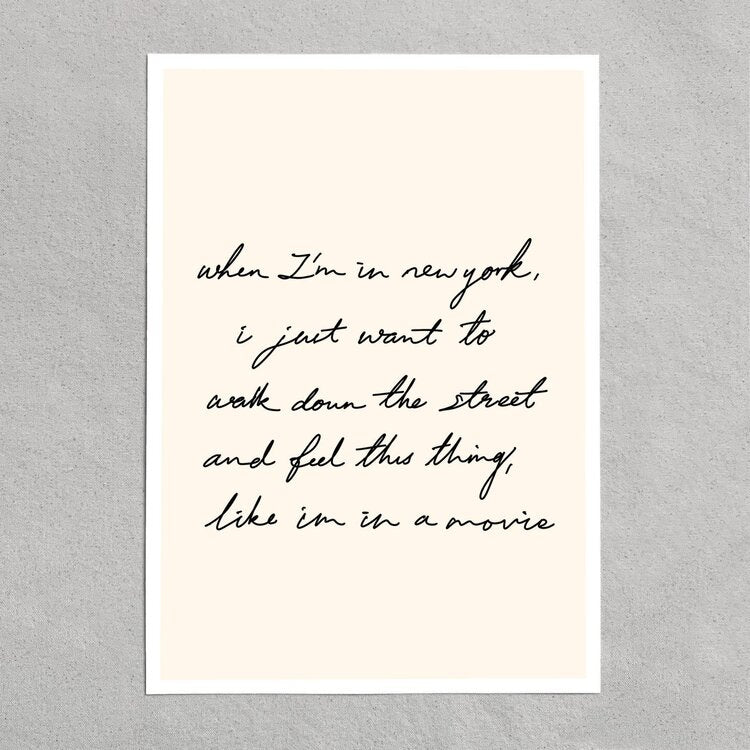 when I'm in new york,
i just want to
walk down the street
and feel this thing,
like im in a movie